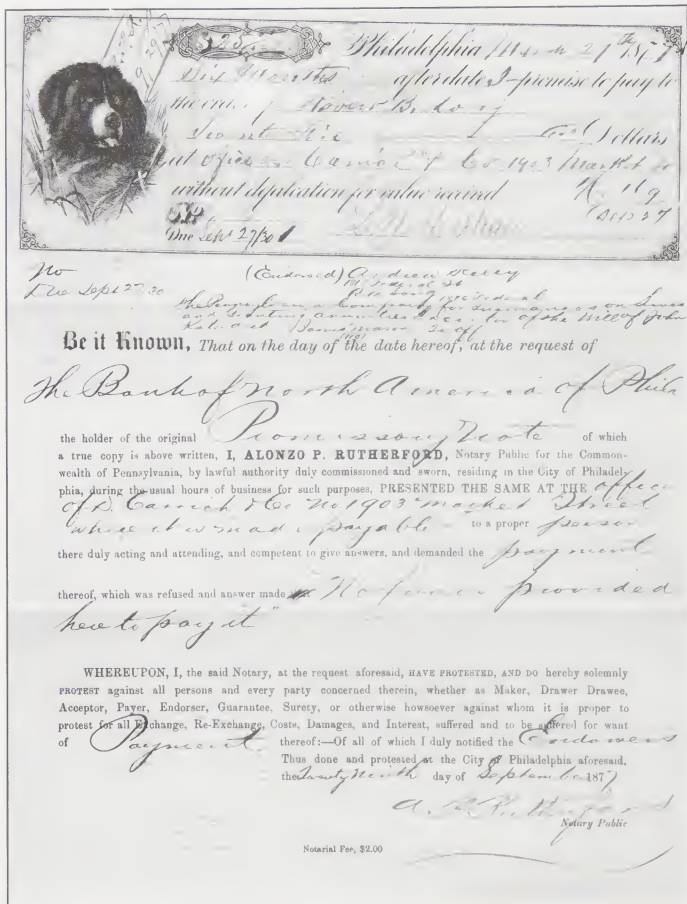 $325
Philadelphia March 27th 187
Six Months after date I promise to pay to
the order of Robert B.
Dollars
at office Carrick & Co 1903 Market St
without defalcation for value received
No 119
Sept 27
Due Sept 27/30
No
Due Sept 27.30
(Endorsed) Andrew
The Pennsylvania Company for Insurances on Lives
and Granting Annuities of the Will of John
Be it Known, That on the day of the date hereof, at the request of
The Bank of North America of Phila
the holder of the original Promissory Note of which
a true copy is above written, I, ALONZO P. RUTHERFORD, Notary Public for the Common-
wealth of Pennsylvania, by lawful authority duly commissioned and sworn, residing in the City of Philadel-
phia, during the usual hours of business for such purposes, PRESENTED THE SAME AT THE office
of D. Carrick & Co No 1903 Market Street
where it is made payable to a proper person
there duly acting and attending, and competent to give answers, and demanded the payment
thereof, which was refused and answer made "No funds provided
here to pay it"
WHEREUPON, I, the said Notary, at the request aforesaid, HAVE PROTESTED, AND DO hereby solemnly
PROTEST against all persons and every party concerned therein, whether as Maker, Drawer Drawee,
Acceptor, Payer, Endorser, Guarantee, Surety, or otherwise howsoever against whom it is proper to
protest for all Exchange, Re-Exchange, Costs, Damages, and Interest, suffered and to be suffered for want
of Payment thereof:—Of all of which I duly notified the Endorsers
Thus done and protested at the City of Philadelphia aforesaid,
the Twenty Ninth day of September 1877
A. P. Rutherford
Notary Public
Notarial Fee, $2.00